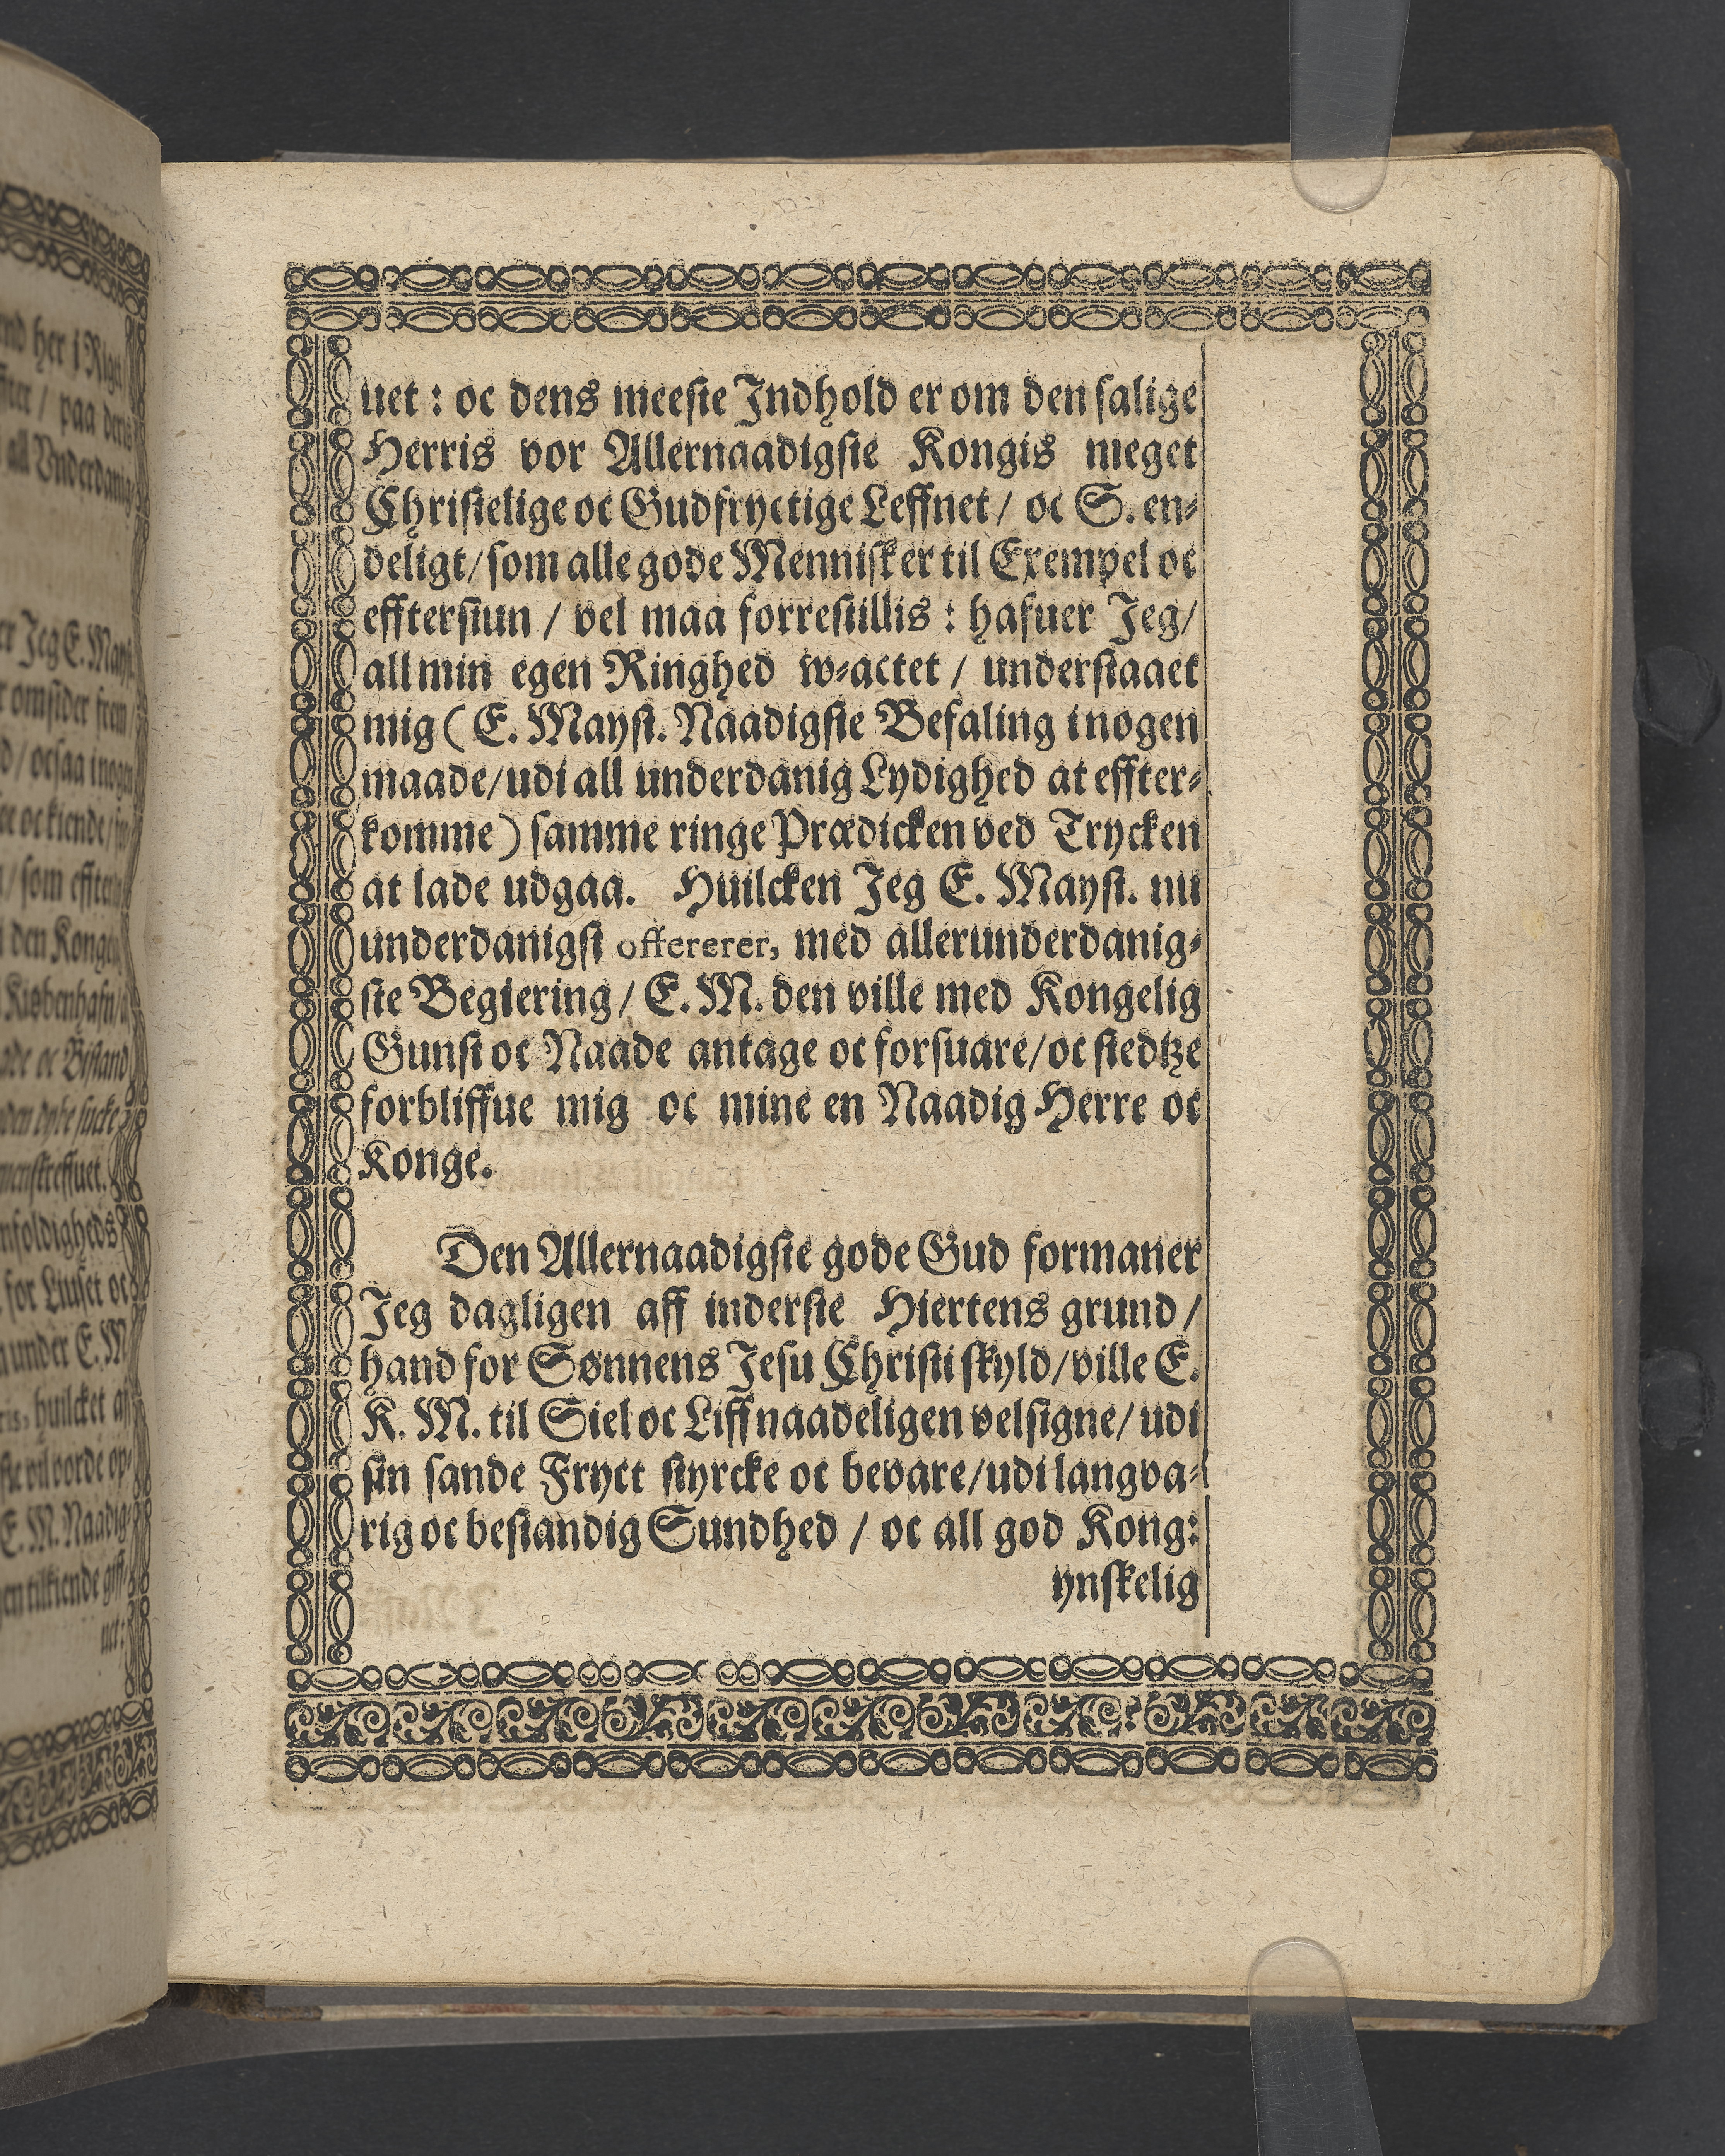 uet : oc dens meeſte Indhold er om den ſalige
Herris vor Allernaadigſte Kongis meget
Chriſtelige oc Gudfryctige Leffnet / oc S. en⸗
deligt / ſom alle gode Menniſker til Exempel oc
efftersiun / vel maa forreſtillis : hafuer Jeg /
all min egen Ringhed w⸗actet / underſtaaet
mig ( E. Mayſt. Naadigſte Befaling i nogen
maade / udi all underdanig Lydighed at effter⸗
komme ) ſamme ringe Prædicken ved Trycken
at lade udgaa. Huilcken Jeg E. Mayſt. nu
underdanigſt offererer, med allerunderdanig⸗
ſte Begiering / E. M. den ville med Kongelig
Gunſt oc Naade antage oc forſuare / oc ſtedtze
forbliffue mig oc mine en Naadig Herre oc
Konge.
Den Allernaadigſte gode Gud formaner
Jeg dagligen aff inderſte Hiertens grund /
hand for Sønnens Jeſu Chriſti ſkyld / ville E.
K. M. til Siel oc Liff naadeligen velſigne / udi
ſin ſande Fryct ſtyrcke oc bevare / udi langva⸗
rig oc beſtandig Sundhed / oc all god Kong:
ynſkelig